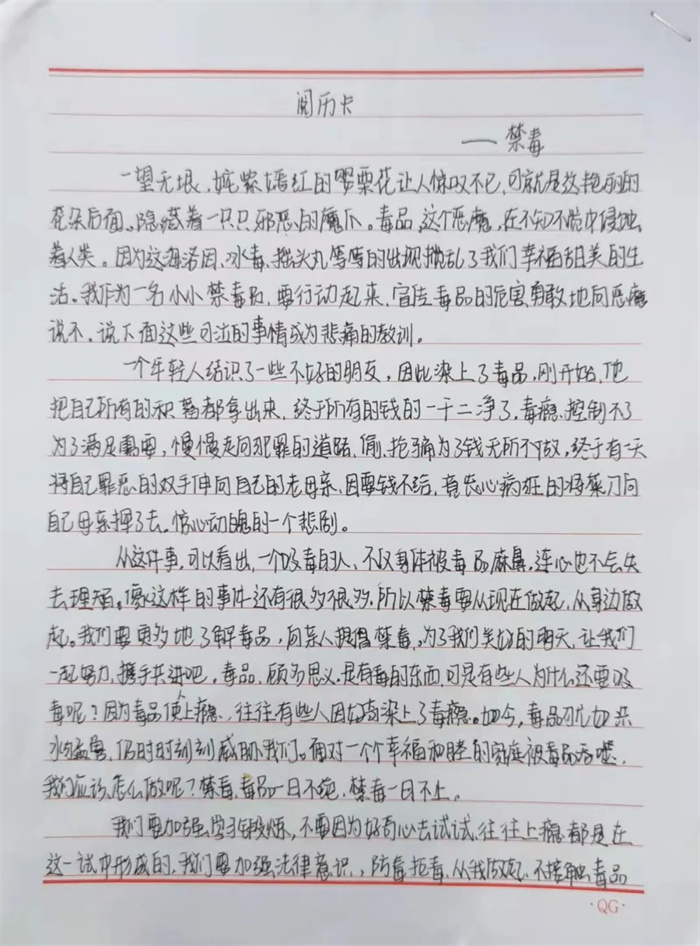 阅历卡
——禁毒
一望无垠、姹紫嫣红的罂粟花让人惊叹不已,可就是这艳丽的
花朵后面。隐藏着一只只邪恶的魔爪。毒品,这个恶魔,在不知不觉中侵蚀
着人类。因为这海洛因、冰毒、摇头丸等等的出现搅乱了我们幸福甜美的生
活。我作为一名小小禁毒员,要行动起来,宣传毒品的危害,勇敢地向恶魔
说不、说下面这些可泣的事情成为悲痛的教训。
一个年轻人结识了一些不好的朋友,因此染上了毒品,刚开始,他
把自己所有的积蓄都拿出来,终于所有的钱的一干二净了,毒瘾控制不了
为了满足需要,慢慢走向犯罪的道路、偷、抢、骗为了钱无所不做,终于有一天
将自己罪恶的双手伸向自己的老母亲、因要钱不给,竟丧心病狂的将菜刀向
自己母亲挥了去。惊心动魄的一个悲剧。
从这件事,可以看出,一个吸毒的人、不仅身体被毒品麻鼻,连心也不会失
去理智。像这样的事件还有很多很多,所以禁毒要从现在做起,从身边做
起。我们要更多地了解毒品,向亲人提倡禁毒,为了我们美好的明天,让我们
一起努力,携手共进吧。毒品,顾多思义,是有毒的东西,可是有些人为什么还要吸
毒呢?因为毒品使上瘾,往往有些人因好奇染上了毒瘾。如今,毒品犹如洪
水猛兽,仍时时刻刻威胁我们。面对一个个幸福和睦的家庭被毒品吞噬,
我们应该怎么做呢?禁毒,毒品一日不绝,禁毒一日不止。
我们要加强学习锻炼,不要因为好奇心去试试,往往上瘾都是在
这一试中形成的,我们要加强法律意识,,防毒拒毒,从我做起,不接触毒品
·QG·